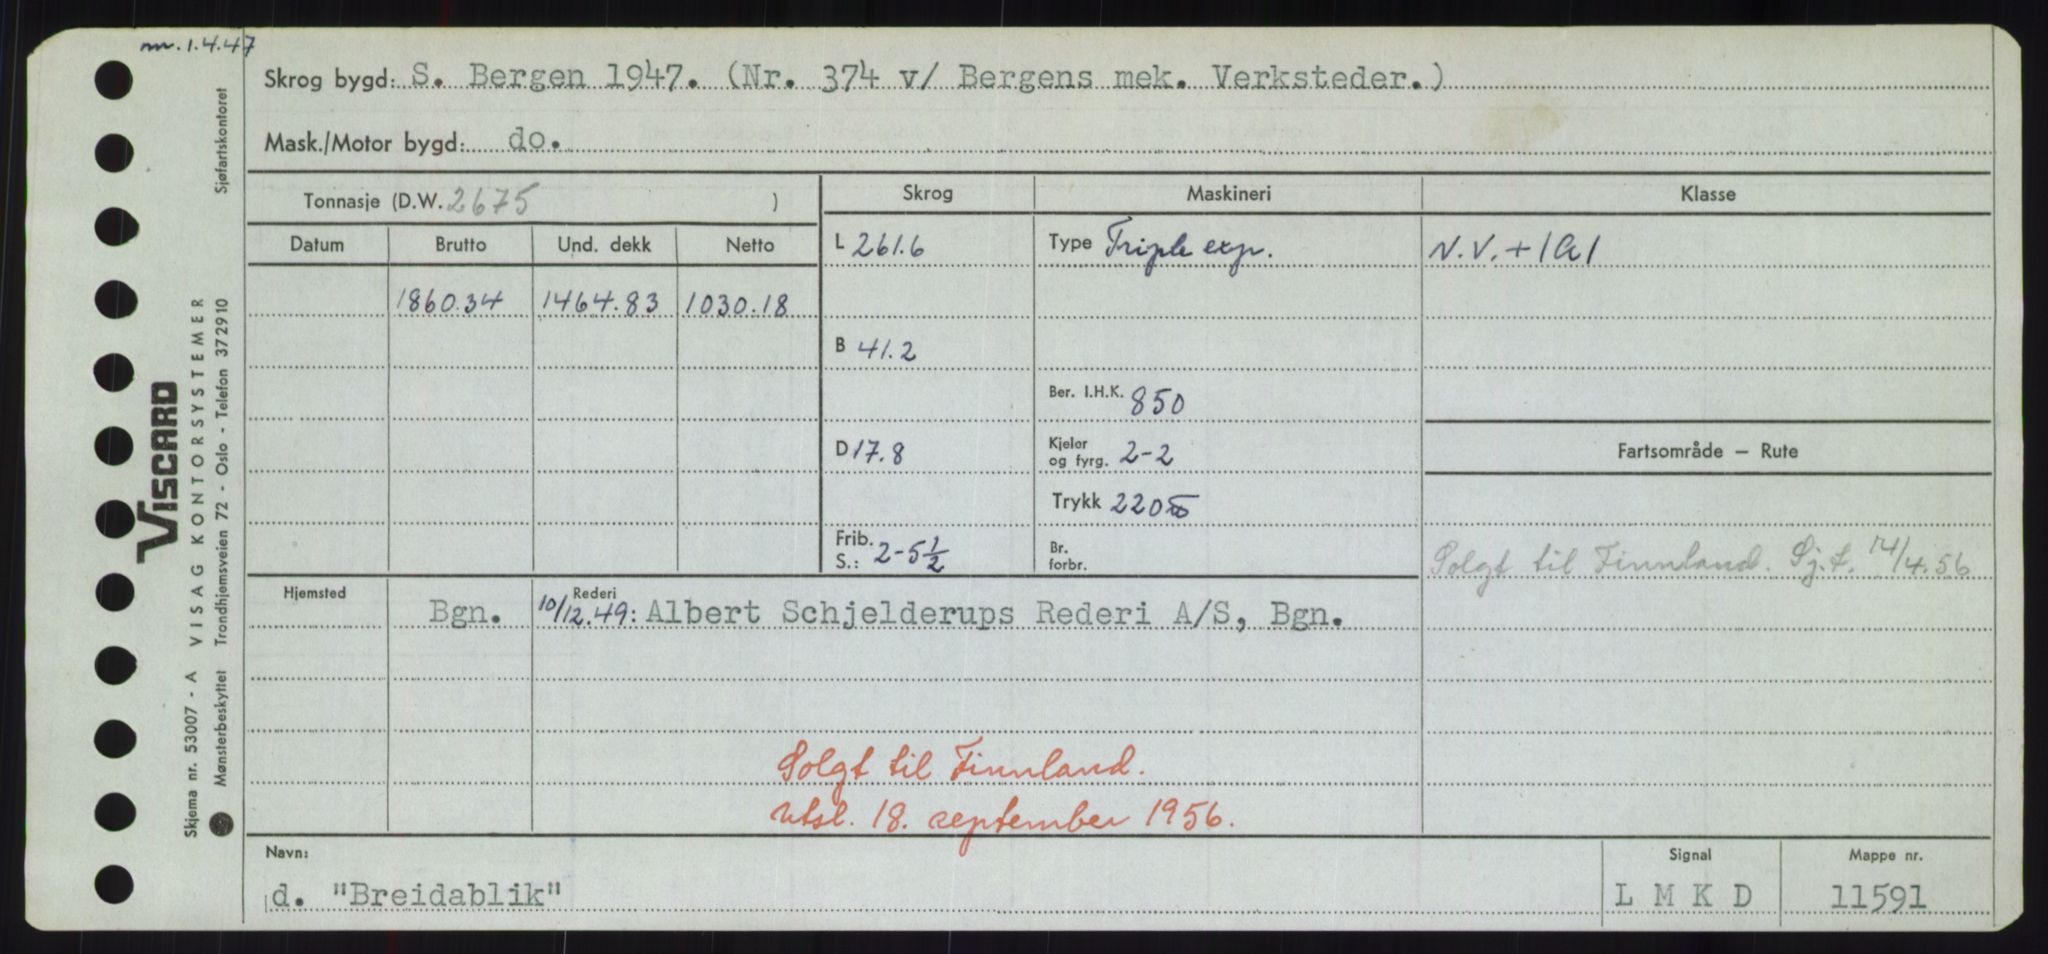 nr. 1.4.47
Skrog bygd: S. Bergen 1947. (Nr. 374 v/ Bergens mek. Verksteder.)
Mask./Motor bygd: do.
Tonnasje (D.W. 2675 )
Skrog
Maskineri
Klasse
Datum
Brutto
Und. dekk
Netto
L 261.6
Type Triple exp.
N.V. + 1A1
1860.34
1464.83
1030.18
B 41.2
Ber. I.H.K. 850
D 17.8
Kjeler
og fyrg. 2-2
Fartsområde – Rute
Trykk 220
Frib.
S.: 2-5½
Br.
forbr.
Solgt til Finnland. Sj.f. 14/4.56
Hjemsted
Bgn.
Rederi
10/12.49: Albert Schjelderups Rederi A/S, Bgn.
Solgt til Finnland.
utsl. 18. september 1956.
Navn:
d. "Breidablik"
Signal
L M K D
Mappe nr.
11591
VISCARD
Skjema nr. 53007 - A VISAG KONTORSYSTEMER
Mønsterbeskyttet Trondhjemsveien 72 - Oslo - Telefon 372910 Sjøfartskontoret